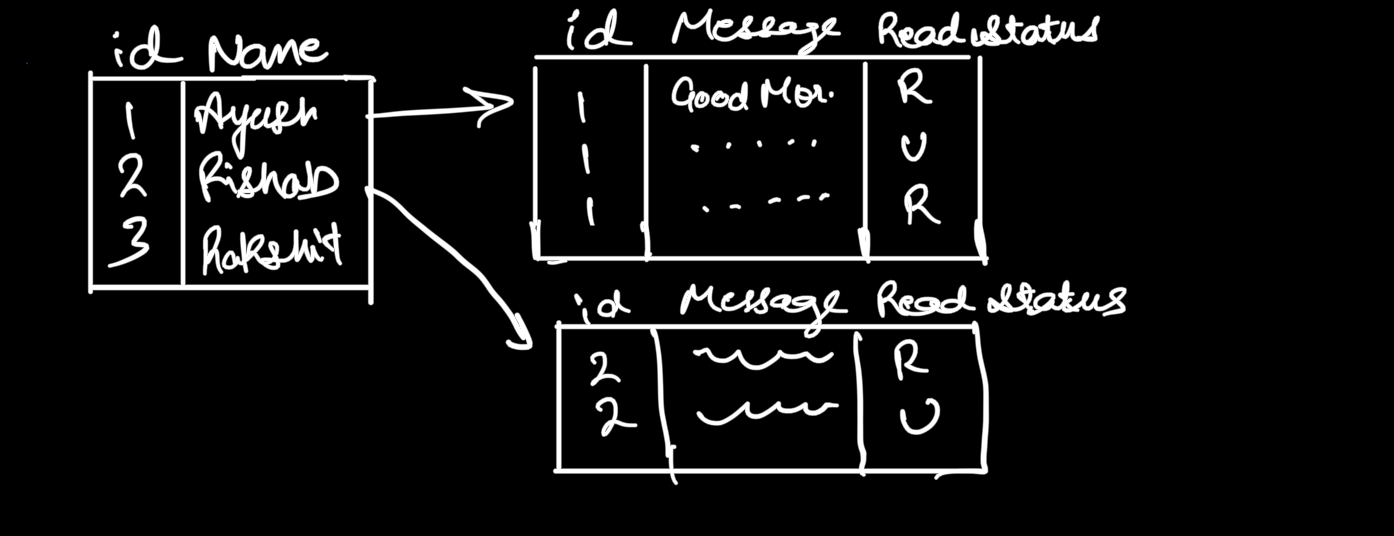 id Name
1 Ayush
2 Rishab
3 Rakshit
id Message Read status
1 Good Mor. R
1 ..... U
1 ..... R
id Message Read status
2 R
2 U